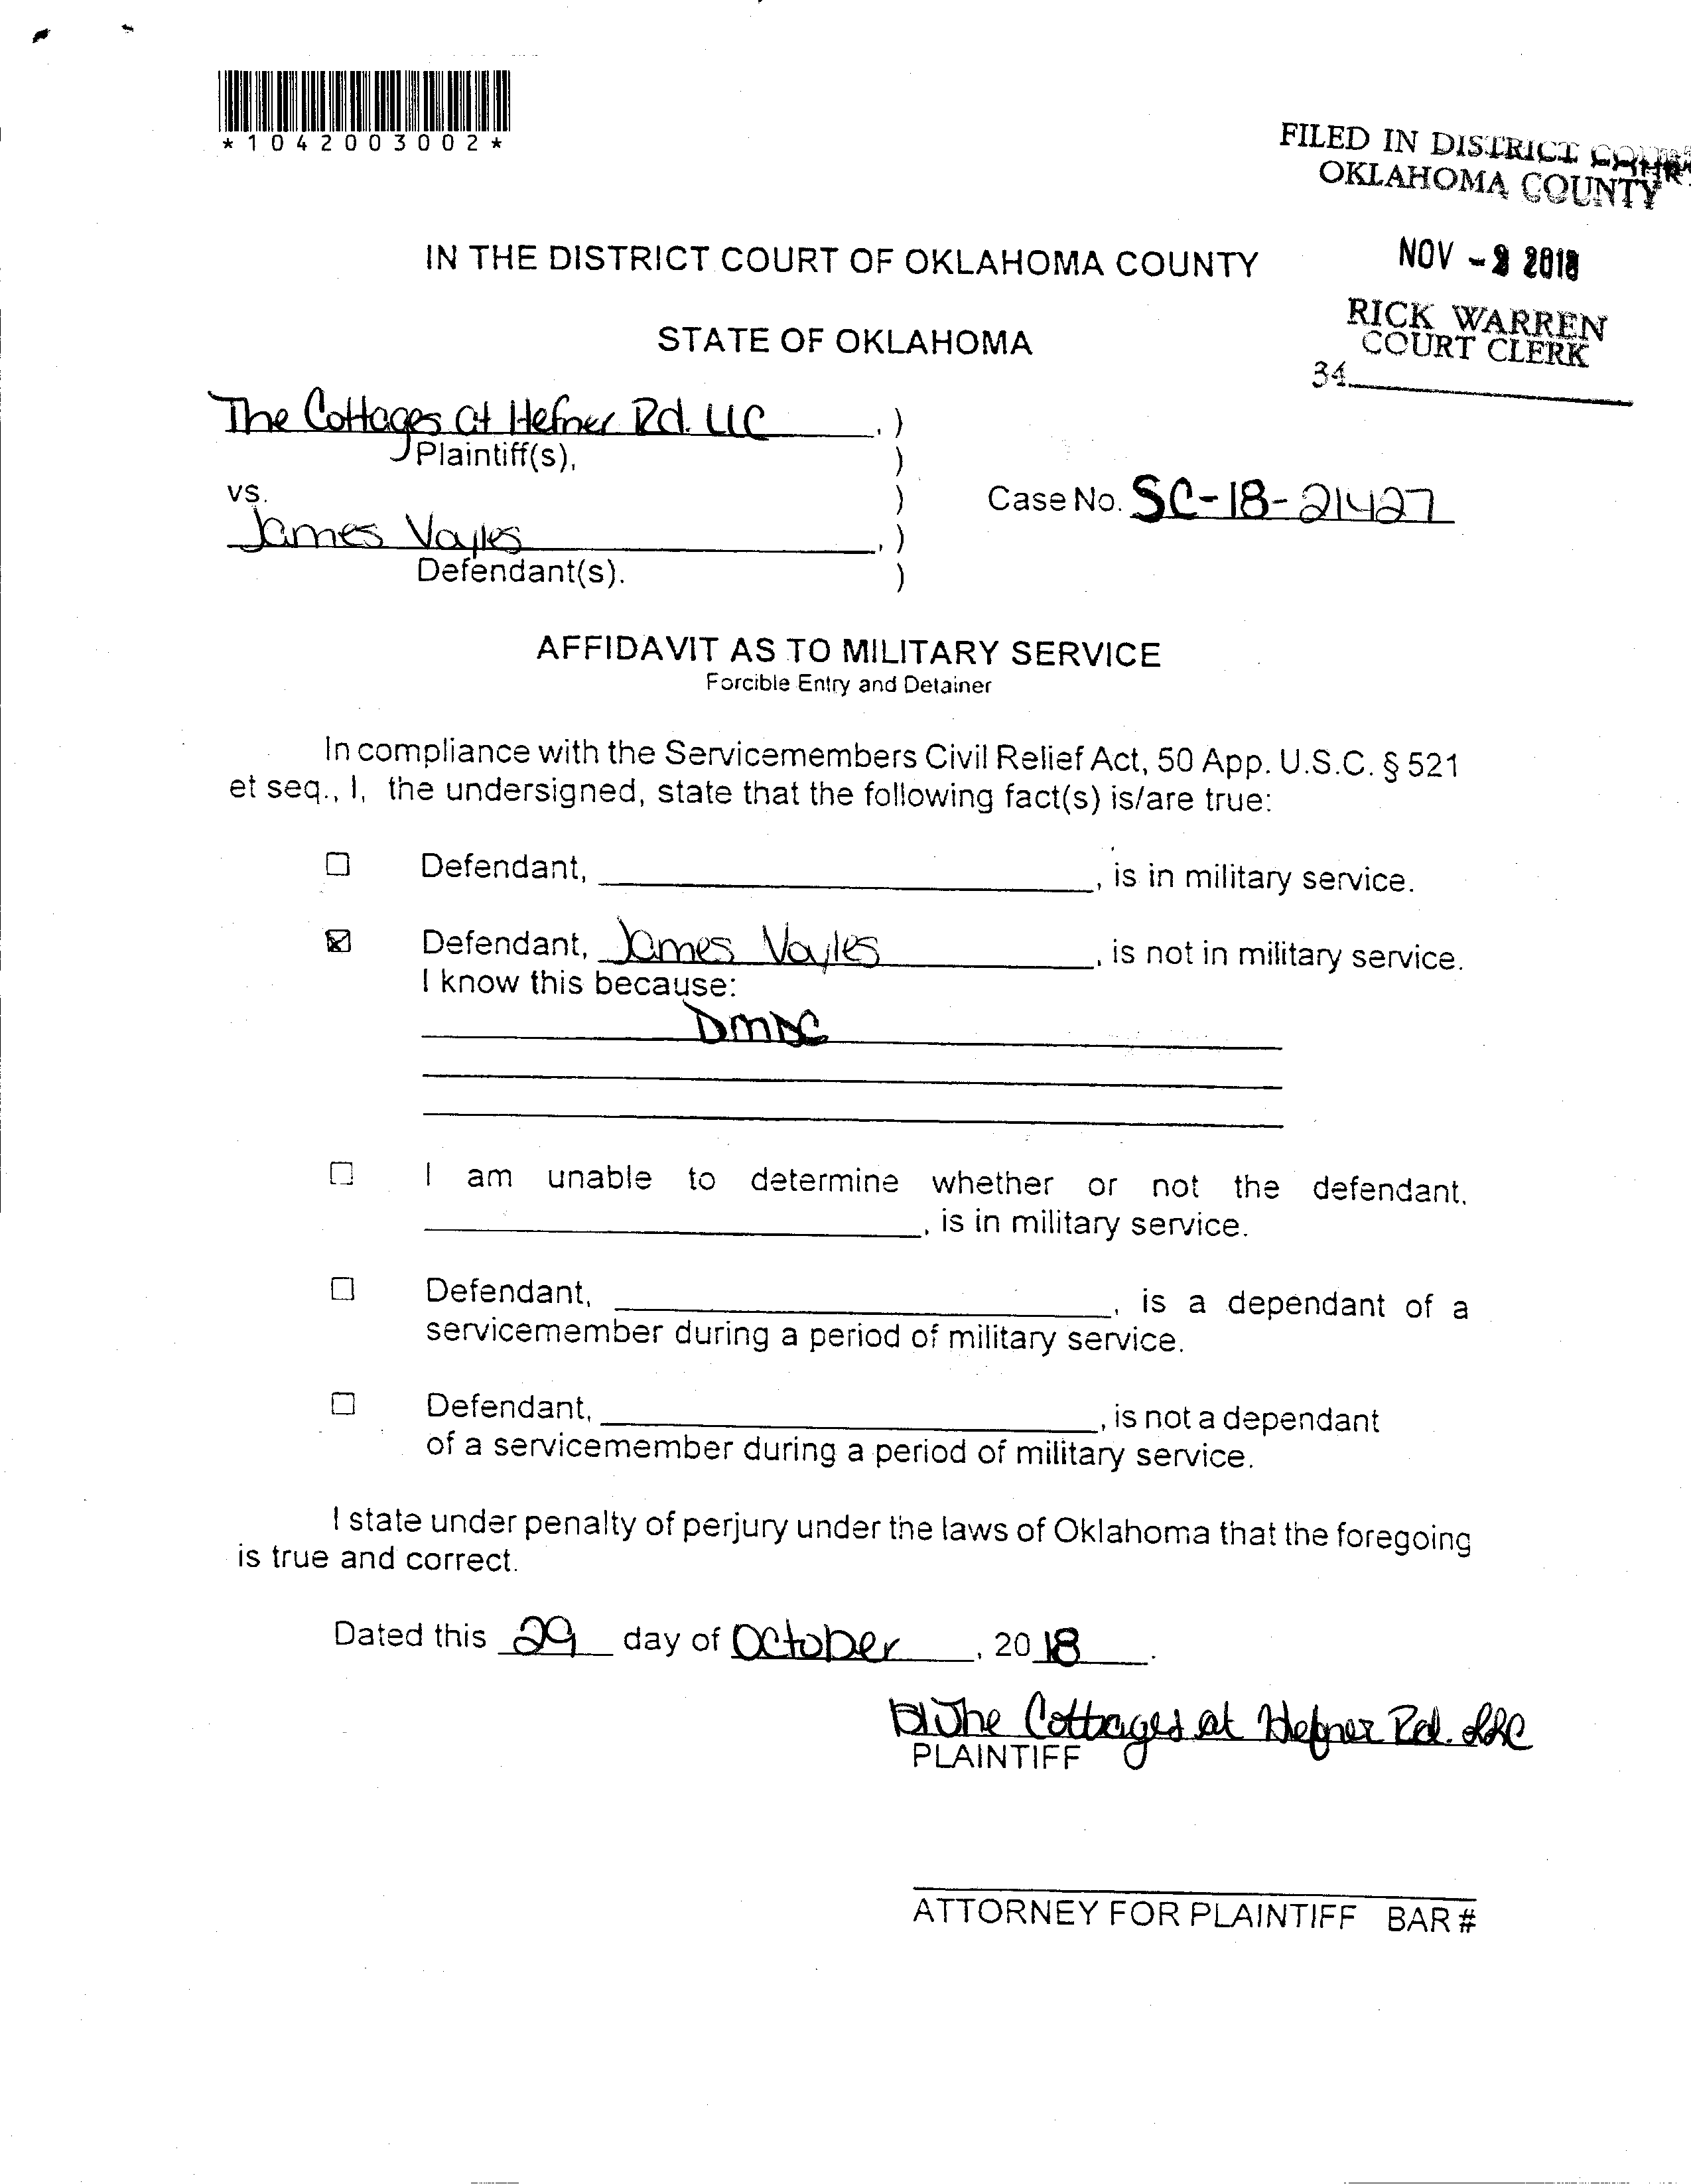 *1042003002*
FILED IN DISTRICT COURT
OKLAHOMA COUNTY
IN THE DISTRICT COURT OF OKLAHOMA COUNTY
NOV - 2018
STATE OF OKLAHOMA
RICK WARREN
COURT CLERK
34
The Cottages at Hefner Rd. LLC, )
Plaintiff(s), )
vs. ) Case No. SC-18-21427
James Vayles, )
Defendant(s). )
AFFIDAVIT AS TO MILITARY SERVICE
Forcible Entry and Detainer
In compliance with the Servicemembers Civil Relief Act, 50 App. U.S.C. § 521
et seq., I, the undersigned, state that the following fact(s) is/are true:
☐ Defendant, , is in military service.
☒ Defendant, James Vayles, is not in military service.
I know this because:
DMDC
☐ I am unable to determine whether or not the defendant,
, is in military service.
☐ Defendant, , is a dependant of a
servicemember during a period of military service.
☐ Defendant, , is not a dependant
of a servicemember during a period of military service.
I state under penalty of perjury under the laws of Oklahoma that the foregoing
is true and correct.
Dated this 29 day of October, 2018.
The Cottages at Hefner Rd. LLC
PLAINTIFF
ATTORNEY FOR PLAINTIFF BAR #